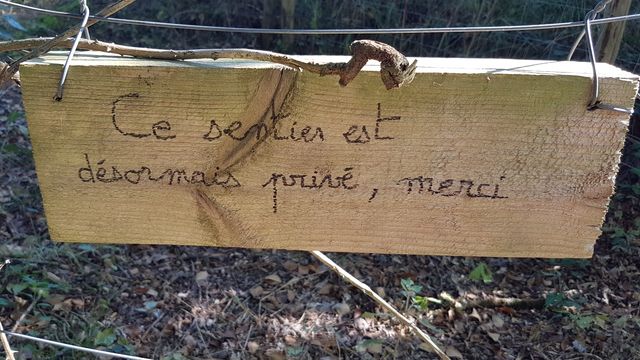 Ce sentier est
désormais privé, merci